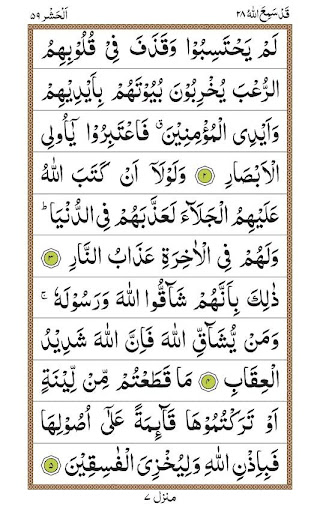 قَدْ سَمِعَ اللّٰهُ ٢٨ اَلْحَشْر ٥٩
لَمْ يَحْتَسِبُوْا وَقَذَفَ فِيْ قُلُوْبِهِمُ
الرُّعْبَ يُخْرِبُوْنَ بُيُوْتَهُمْ بِاَيْدِيْهِمْ
وَاَيْدِي الْمُؤْمِنِيْنَ ۗ فَاعْتَبِرُوْا يٰۤاُولِي
الْاَبْصَارِ ۲ وَلَوْلَاۤ اَنْ كَتَبَ اللّٰهُ
عَلَيْهِمُ الْجَلَآءَ لَعَذَّبَهُمْ فِي الدُّنْيَا ؕ
وَلَهُمْ فِي الْاٰخِرَةِ عَذَابُ النَّارِ ۳
ذٰلِكَ بِاَنَّهُمْ شَآقُّوا اللّٰهَ وَرَسُوْلَهٗ ۚ
وَمَنْ يُّشَآقِّ اللّٰهَ فَاِنَّ اللّٰهَ شَدِيْدُ
الْعِقَابِ ۴ مَا قَطَعْتُمْ مِّنْ لِّيْنَةٍ
اَوْ تَرَكْتُمُوْهَا قَآئِمَةً عَلٰۤى اُصُوْلِهَا
فَبِاِذْنِ اللّٰهِ وَلِيُخْزِيَ الْفٰسِقِيْنَ ۵
منزل ٧